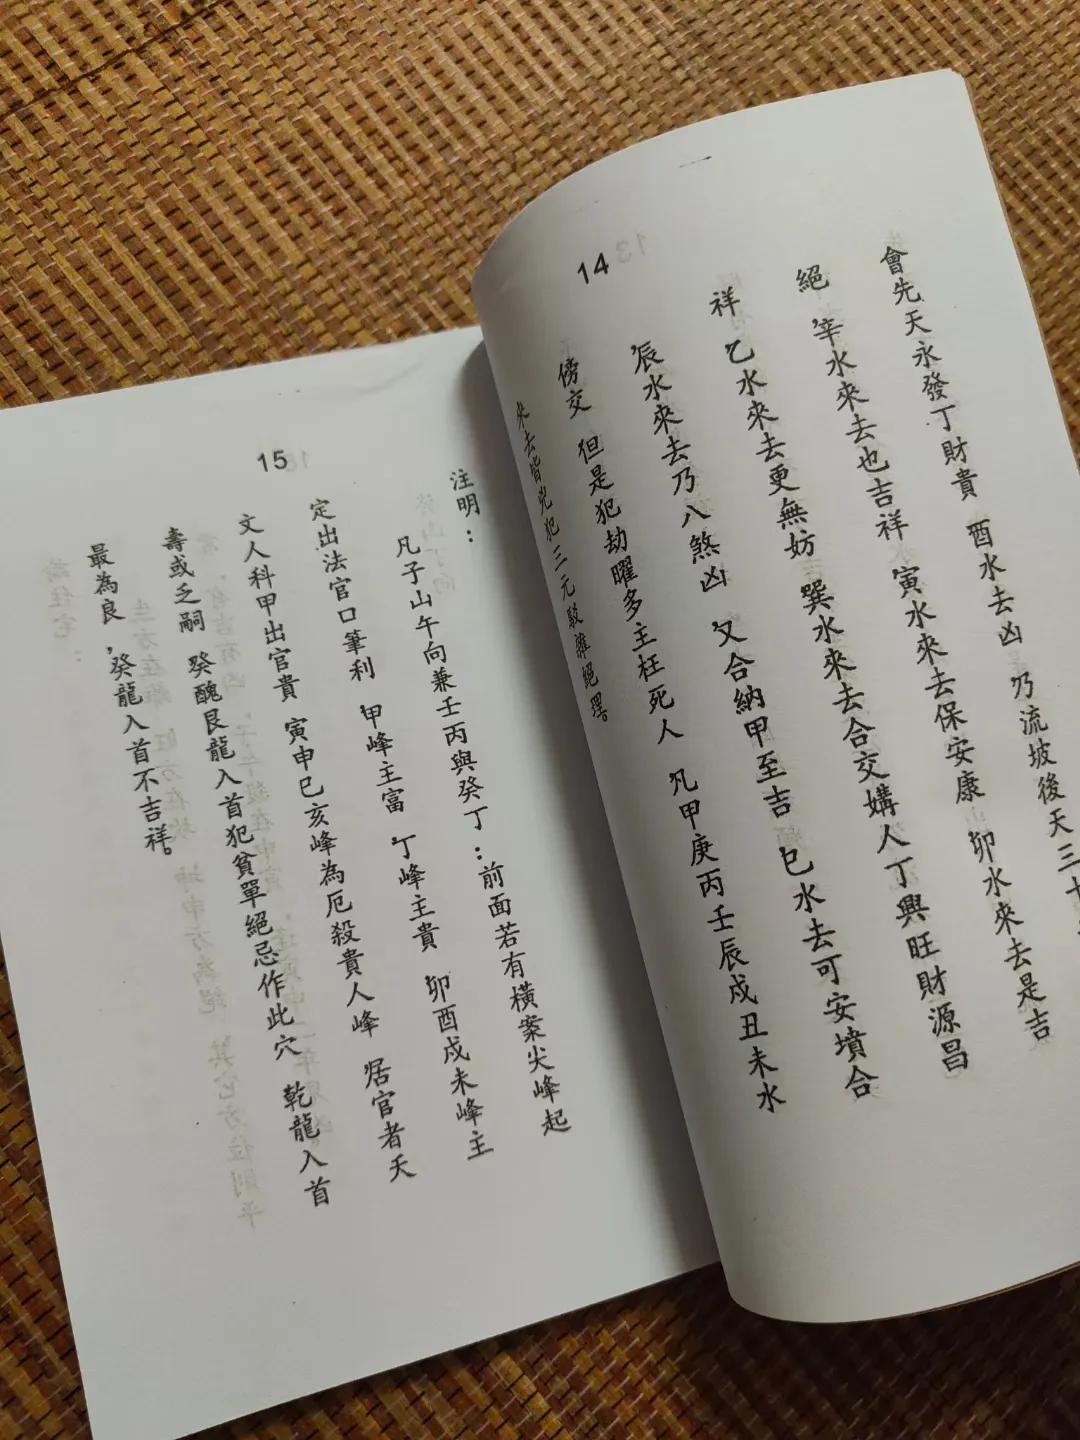 14
會先天永發丁財貴 酉水去凶 乃流坡後天三十
絕 辛水來去也吉祥 寅水來去保安康 卯水來去是吉
祥 乙水來去更無妨 巽水來去合交媾人丁興旺財源昌
辰水來去乃八煞凶 又合納甲至吉 巳水去可安墳合
傍交 但是犯劫曜多主枉死人 凡甲庚丙壬辰戍丑未水
來去皆兇犯三元駁雜絕
15
注明：
凡子山午向兼壬丙與癸丁：前面若有橫案尖峰起
定出法官口筆利 甲峰主富 丁峰主貴 卯酉戍未峰主
文人科甲出官貴 寅申巳亥峰為厄殺貴人峰 居官者夭
壽或乏嗣 癸醜艮龍入首犯貧單絕忌作此穴 乾龍入首
最為良，癸龍入首不吉祥。